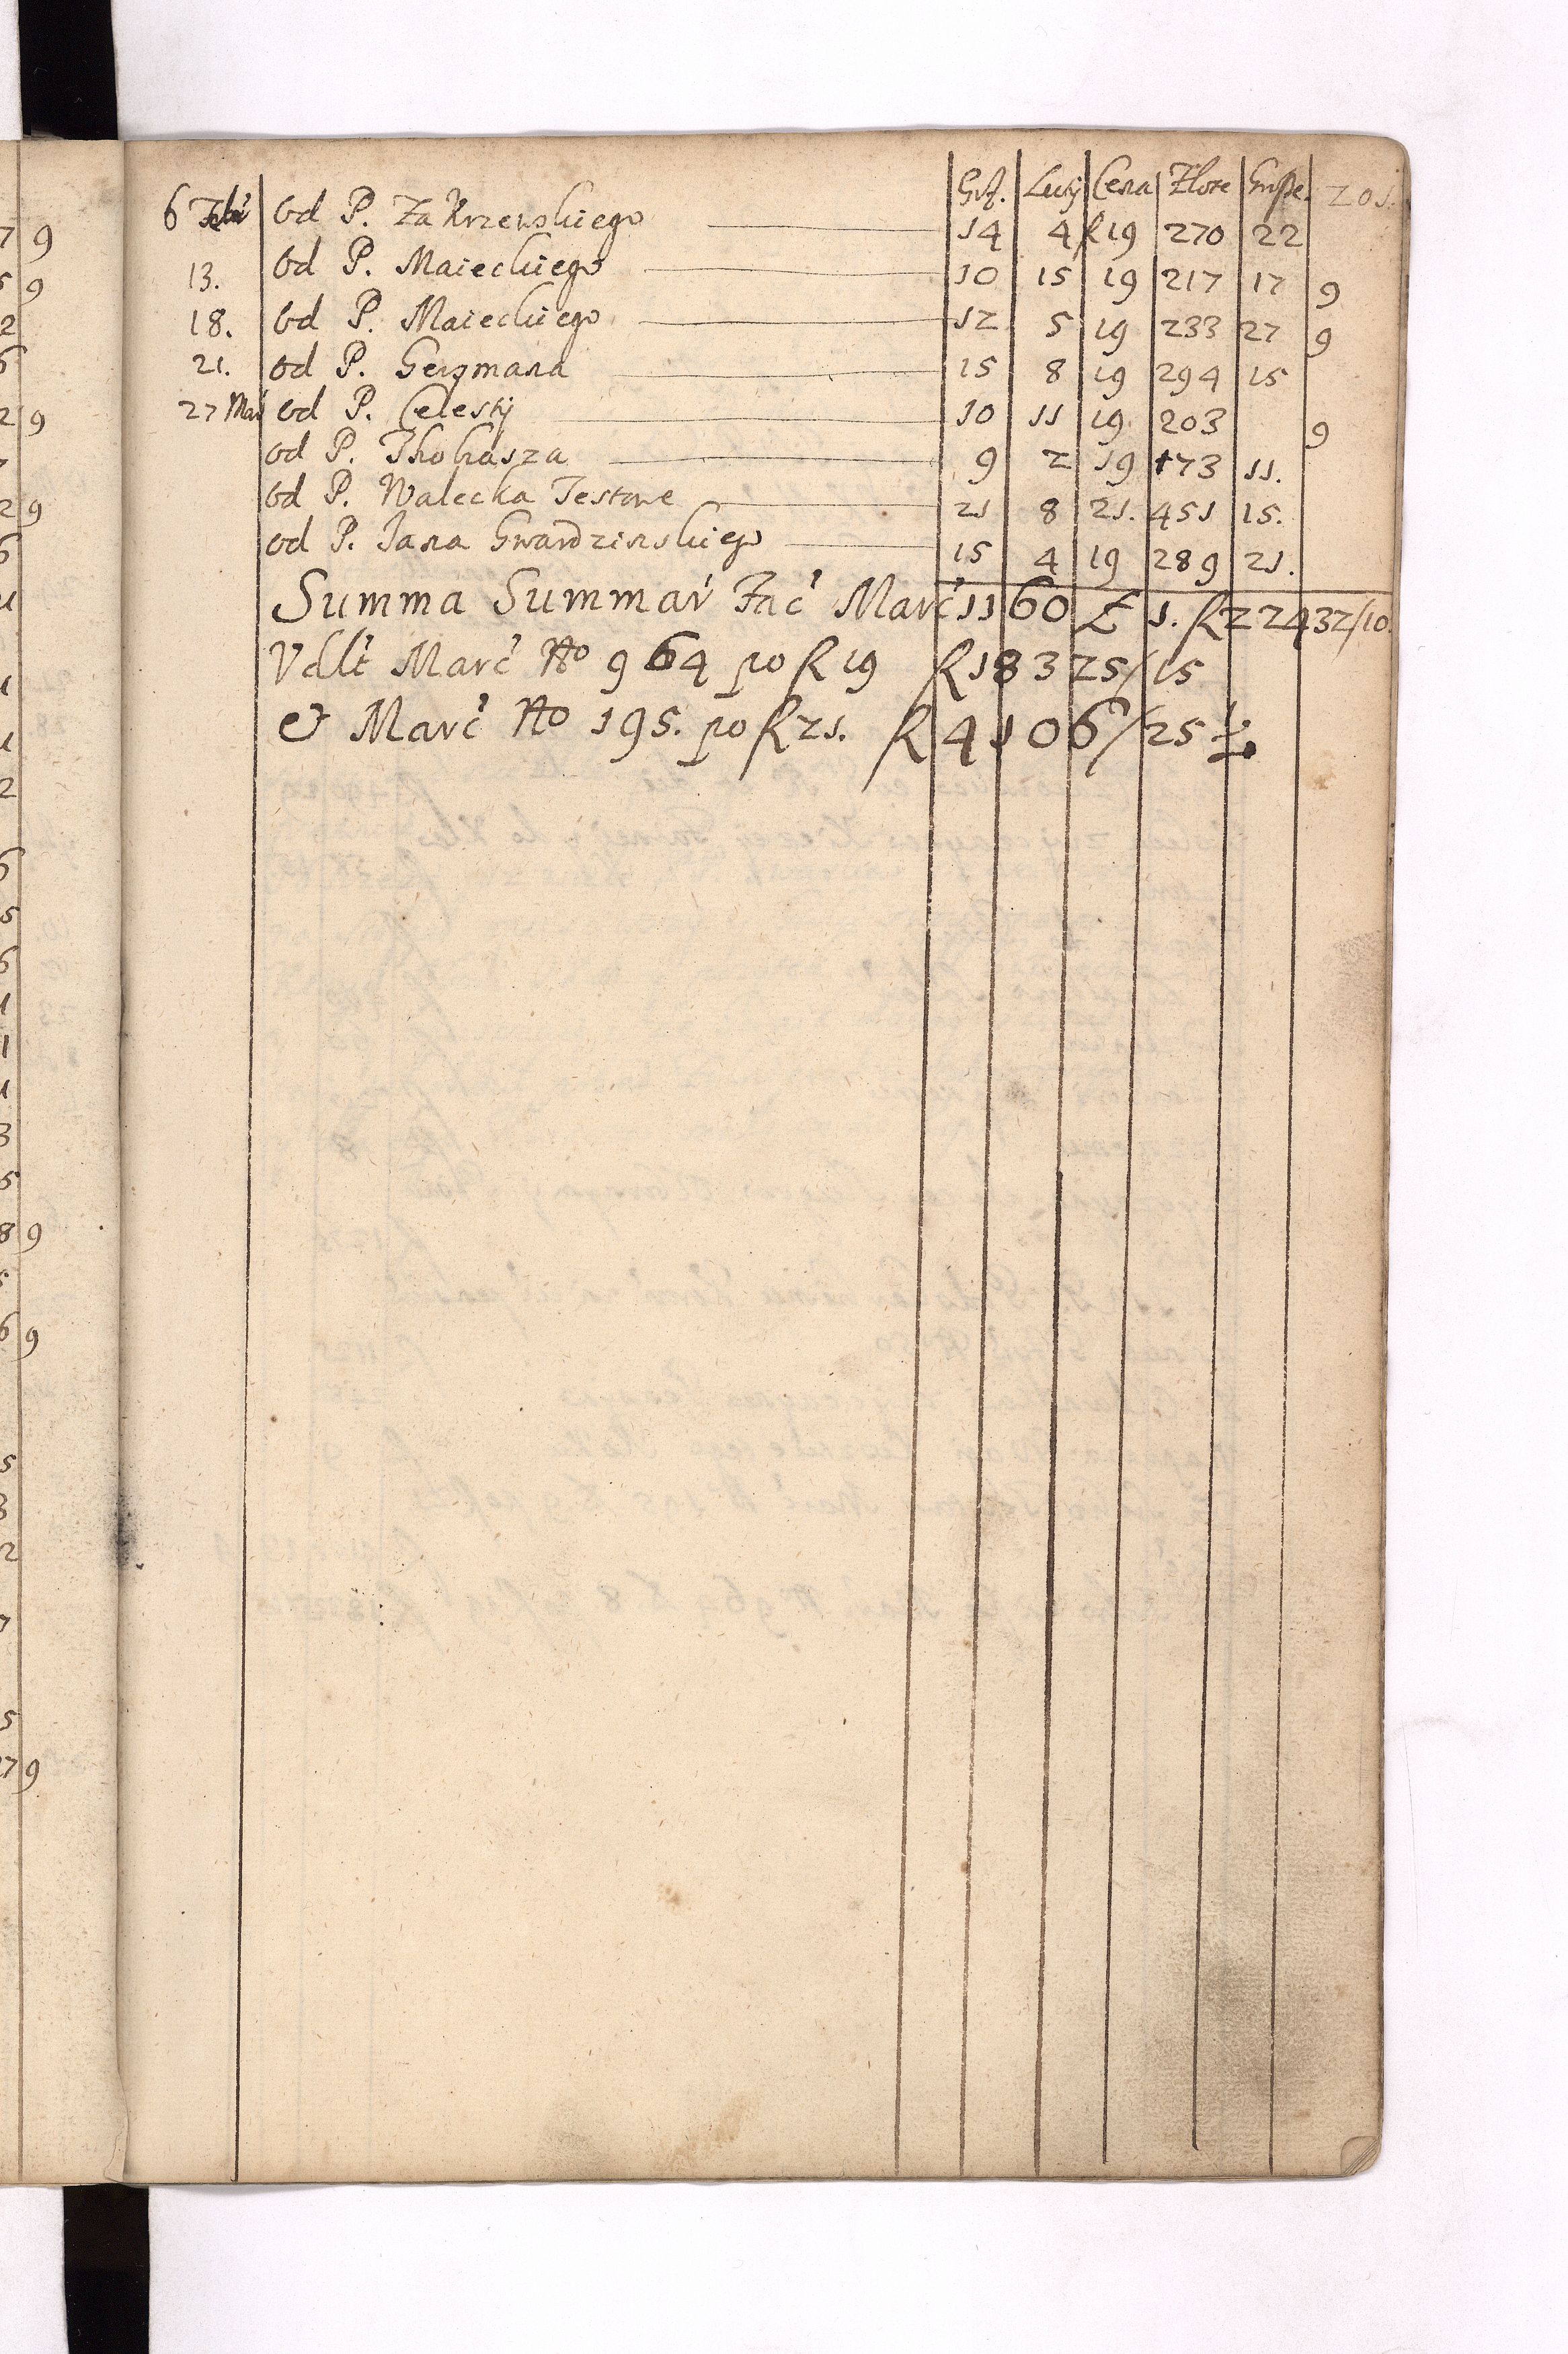 Grz. Luty Cena Złote Grosze. 201.
6 Febr od P. Zakrzewskiego 14 4 f 19 270 22
13. od P. Maieckiego 10 15 19 217 17 9
18. od P. Maieckiego 12 5 19 233 27 9
21. od P. Gengmana 15 8 19 294 15
27 Mar od P. Celesty 10 11 19 203 9
od P. Thobiasza 9 2 19 173 11.
od P. Walecka Testowe 21 8 21. 451 15.
od P. Jana Gwardzinskiego 15 4 19 289 21.
Summa Summar Fac Marc 1160 £ 1. f 22432/10.
Vdlt Marc No 964 po f 19 f 18325/15
& Marc No 195. po f 21. f 4106/25 ½.
7 9
5 9
2
6
2 9
2 9
6
2
6
5
6
1
1
3
5
8 9
6 9
5
3
2
7
5
17 9